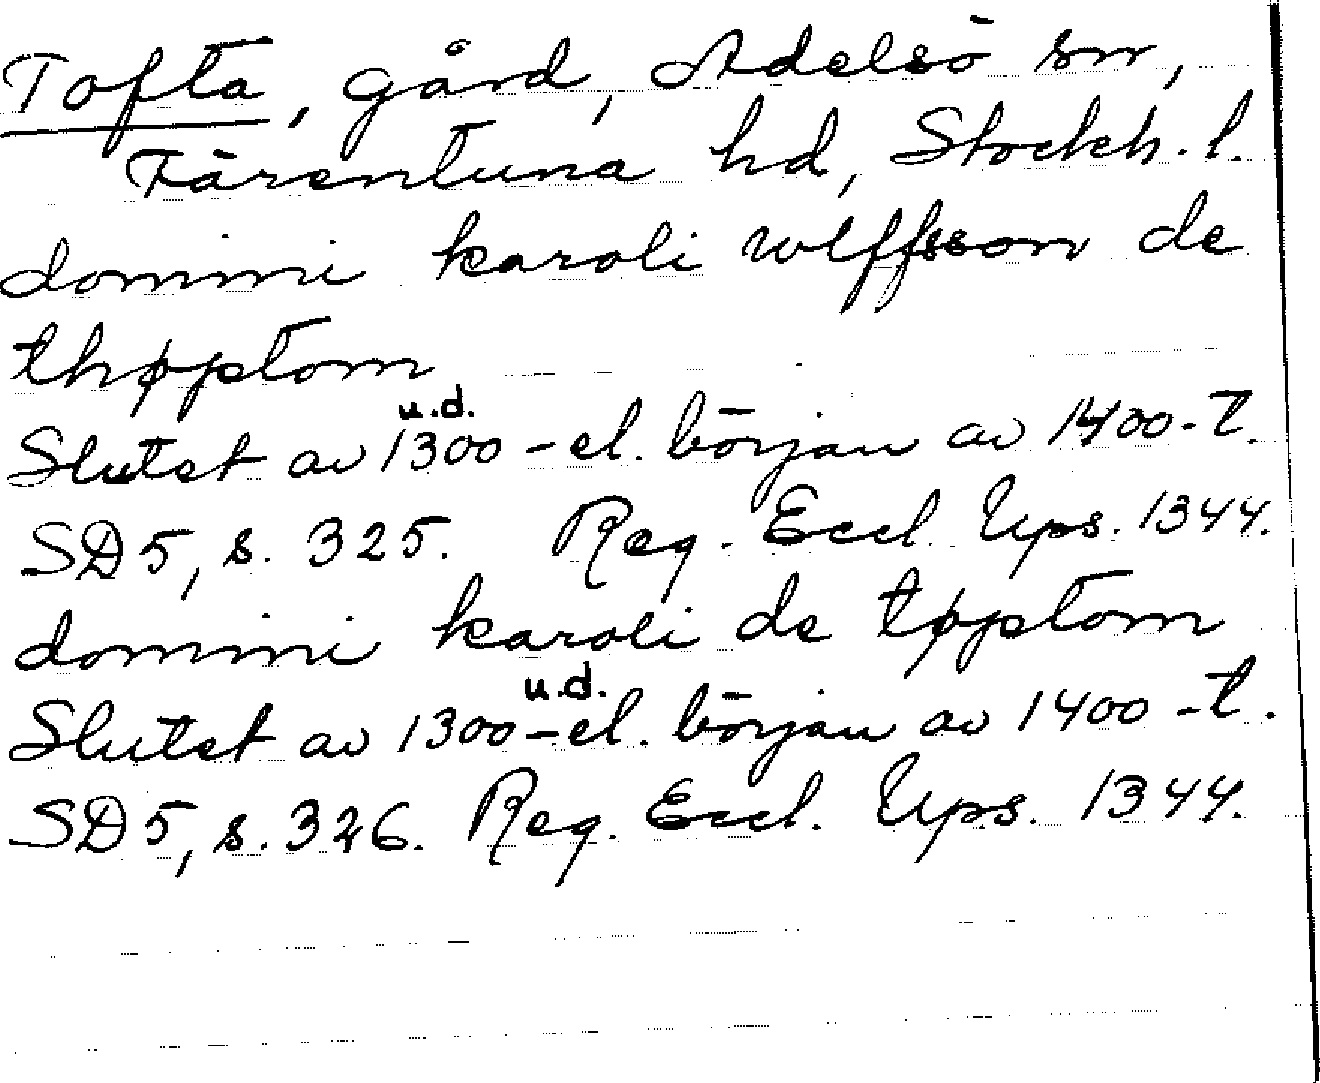 Tofta, gård, Adelsö sn,
Färentuna hd, Stockh. l.
domini karoli wlffsson de
thøptom
u.d.
Slutet av 1300-el. början av 1400-t.
SD5, s. 325. Reg. Eccl. Ups. 1344.
domini karoli de tøptom
u.d.
Slutet av 1300-el. början av 1400-t.
SD5, s. 326. Reg. Eccl. Ups. 1344.